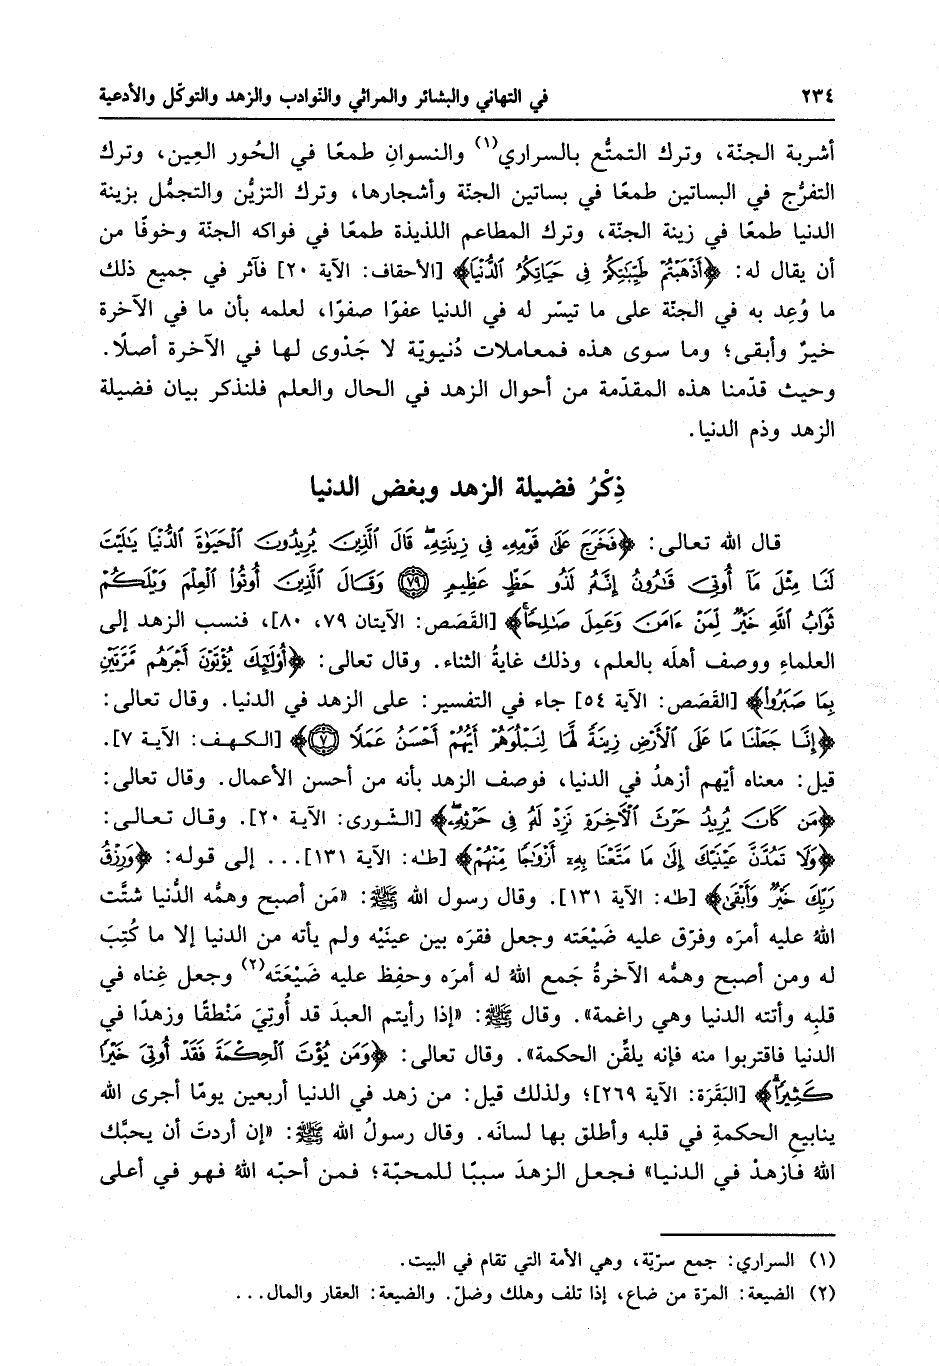 ٢٣٤ في التهاني والبشائر والمراثي والنّوادب والزهد والتوكّل والأدعية
أشربة الجنّة، وترك التمتُّع بالسراري(١) والنسوانِ طمعًا في الحُور العِين، وترك
التفرُّج في البساتين طمعًا في بساتين الجنّة وأشجارها، وترك التزيُّن والتجمُّل بزينة
الدنيا طمعًا في زينة الجنّة، وترك المطاعم اللذيذة طمعًا في فواكه الجنّة وخوفًا من
أن يقال له: ﴿أَذْهَبْتُمْ طَيِّبَاتِكُمْ فِى حَيَاتِكُمُ ٱلدُّنْيَا﴾ [الأحقاف: الآية ٢٠] فآثر في جميع ذلك
ما وُعِد به في الجنّة على ما تيسّر له في الدنيا عفوًا صفوًا، لعلمه بأن ما في الآخرة
خيرٌ وأبقى؛ وما سوى هذه فمعاملات دُنيويّة لا جَدْوى لها في الآخرة أصلًا.
وحيث قدّمنا هذه المقدّمة من أحوال الزهد في الحال والعلم فلنذكر بيان فضيلة
الزهد وذم الدنيا.
ذِكْرُ فضيلة الزهد وبغض الدنيا
قال الله تعالى: ﴿فَخَرَجَ عَلَىٰ قَوْمِهِۦ فِى زِينَتِهِۦۖ قَالَ ٱلَّذِينَ يُرِيدُونَ ٱلْحَيَوٰةَ ٱلدُّنْيَا يَٰلَيْتَ
لَنَا مِثْلَ مَآ أُوتِىَ قَٰرُونُ إِنَّهُۥ لَذُو حَظٍّ عَظِيمٍ ٧٩ وَقَالَ ٱلَّذِينَ أُوتُوا۟ ٱلْعِلْمَ وَيْلَكُمْ
ثَوَابُ ٱللَّهِ خَيْرٌ لِّمَنْ ءَامَنَ وَعَمِلَ صَٰلِحًاۚ﴾ [القَصَص: الآيتان ٧٩، ٨٠]، فنسب الزهد إلى
العلماءِ ووصف أهلَه بالعلم، وذلك غايةُ الثناء. وقال تعالى: ﴿أُو۟لَٰٓئِكَ يُؤْتَوْنَ أَجْرَهُم مَّرَّتَيْنِ
بِمَا صَبَرُوا۟﴾ [القَصَص: الآية ٥٤] جاء في التفسير: على الزهد في الدنيا. وقال تعالى:
﴿إِنَّا جَعَلْنَا مَا عَلَى ٱلْأَرْضِ زِينَةً لَّهَا لِنَبْلُوَهُمْ أَيُّهُمْ أَحْسَنُ عَمَلًا ٧﴾ [الكهف: الآية ٧].
قيل: معناه أيّهم أزهدُ في الدنيا، فوصف الزهد بأنه من أحسن الأعمال. وقال تعالى:
﴿مَن كَانَ يُرِيدُ حَرْثَ ٱلْءَاخِرَةِ نَزِدْ لَهُۥ فِى حَرْثِهِۦۖ﴾ [الشورى: الآية ٢٠]. وقال تعالى:
﴿وَلَا تَمُدَّنَّ عَيْنَيْكَ إِلَىٰ مَا مَتَّعْنَا بِهِۦٓ أَزْوَٰجًا مِّنْهُمْ﴾ [طه: الآية ١٣١]... إلى قوله: ﴿وَرِزْقُ
رَبِّكَ خَيْرٌ وَأَبْقَىٰ﴾ [طه: الآية ١٣١]. وقال رسول الله ﷺ: «مَن أصبح وهمُّه الدُّنيا شتَّت
اللهُ عليه أمرَه وفرّق عليه ضَيْعَته وجعل فقرَه بين عينَيْه ولم يأته من الدنيا إلا ما كُتِبَ
له ومن أصبح وهمُّه الآخرةُ جَمع اللهُ له أمرَه وحفِظ عليه ضَيْعَتَه(٢) وجعل غِناه في
قلبِه وأتته الدنيا وهي راغمة». وقال ﷺ: «إذا رأيتم العبدَ قد أُوتِيَ مَنْطقًا وزهدًا في
الدنيا فاقتربوا منه فإنه يلقَّن الحكمة». وقال تعالى: ﴿وَمَن يُؤْتَ ٱلْحِكْمَةَ فَقَدْ أُوتِىَ خَيْرًا
كَثِيرًاۗ﴾ [البَقَرَة: الآية ٢٦٩]؛ ولذلك قيل: من زهد في الدنيا أربعين يومًا أجرى الله
ينابيع الحكمةِ في قلبه وأطلق بها لسانَه. وقال رسولُ الله ﷺ: «إن أردتَ أن يحبَّك
اللهُ فازهدْ في الدنيا» فجعل الزهدَ سببًا للمحبّة؛ فمن أحبّه اللهُ فهو في أعلى
(١) السراري: جمع سريّة، وهي الأمة التي تقام في البيت.
(٢) الضيعة: المرّة من ضاع، إذا تلف وهلك وضلّ. والضيعة: العقار والمال...